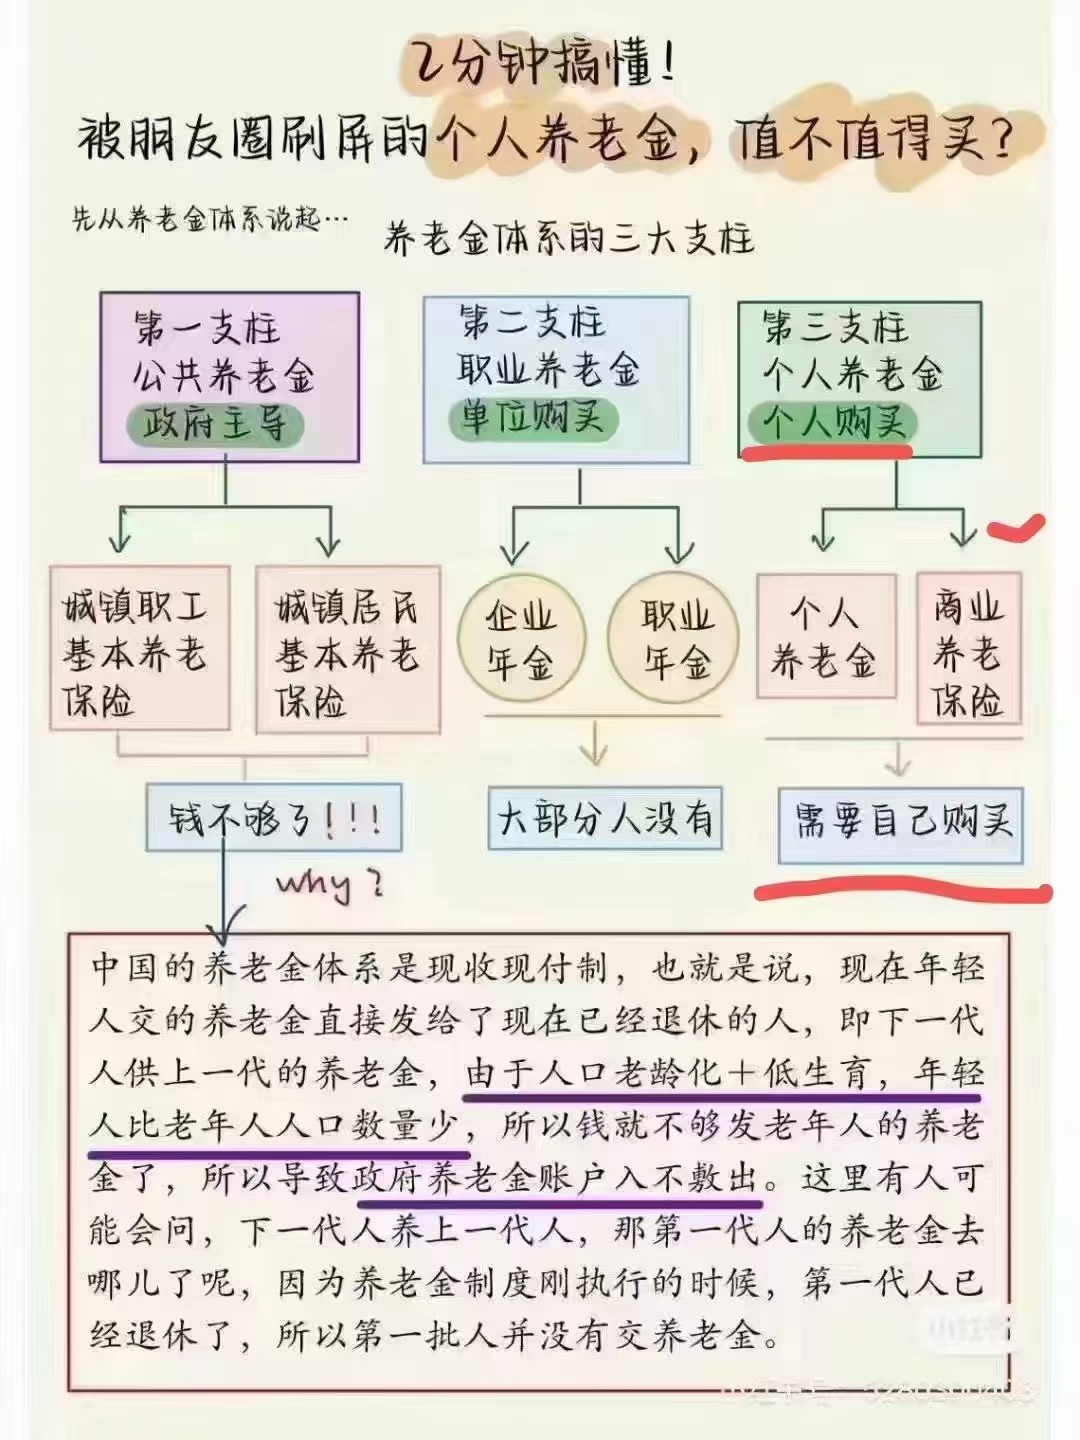 2分钟搞懂！
被朋友圈刷屏的个人养老金，值不值得买？
先从养老金体系说起…
养老金体系的三大支柱
第一支柱
公共养老金
政府主导
第二支柱
职业养老金
单位购买
第三支柱
个人养老金
个人购买
城镇职工
基本养老
保险
城镇居民
基本养老
保险
企业
年金
职业
年金
个人
养老金
商业
养老
保险
钱不够了！！！
大部分人没有
需要自己购买
why？
中国的养老金体系是现收现付制，也就是说，现在年轻
人交的养老金直接发给了现在已经退休的人，即下一代
人供上一代的养老金，由于人口老龄化＋低生育，年轻
人比老年人人口数量少，所以钱就不够发老年人的养老
金了，所以导致政府养老金账户入不敷出。这里有人可
能会问，下一代人养上一代人，那第一代人的养老金去
哪儿了呢，因为养老金制度刚执行的时候，第一代人已
经退休了，所以第一批人并没有交养老金。
小红书